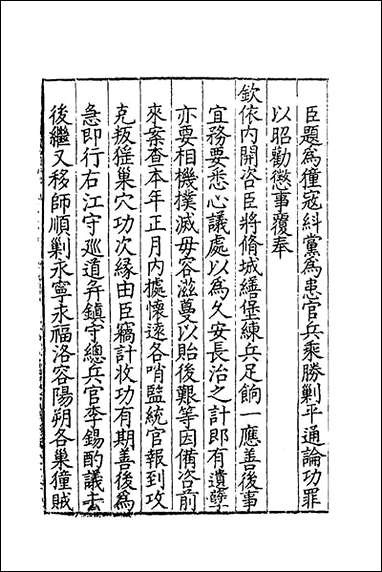 臣題為僮寇糾黨為患官兵乘勝剿平通論功罪
以昭勸懲事覆奉
欽依內開咨臣將脩城繕堡練兵足餉一應善後事
宜務要悉心議處以為久安長治之計即有遺孽
亦要相機撲滅毋容滋蔓以貽後艱等因備咨前
來案查本年正月內據懷遠各哨監統官報到攻
克叛猺巢穴功次緣由臣竊計收功有期善後為
急即行右江守巡道弁鎮守總兵官李錫酌議去
後繼又移師順剿永寧永福洛容陽朔各巢獞賊